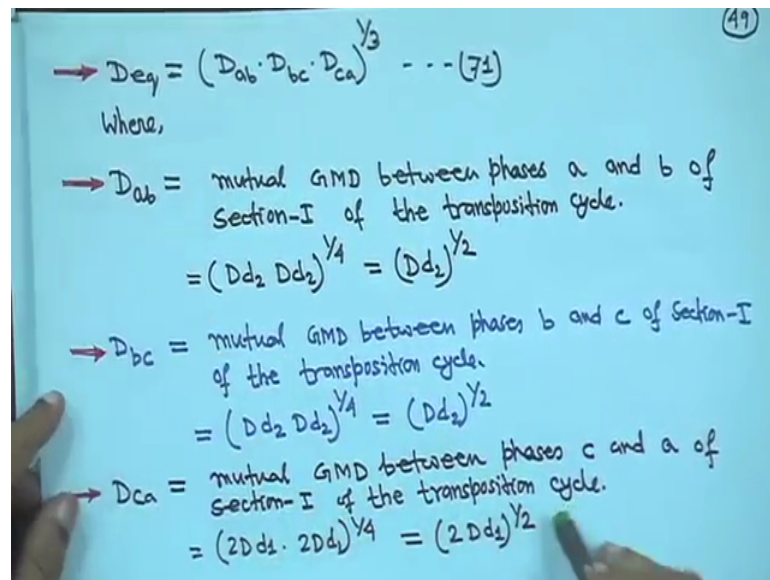 49
→ Deq = (Dab·Dbc·Dca)^1/3 ---(71)
Where,
→ Dab = mutual GMD between phases a and b of
Section-I of the transposition cycle.
= (Dd₂ Dd₂)^1/4 = (Dd₂)^1/2
→ Dbc = mutual GMD between phases b and c of Section-I
of the transposition cycle.
= (Dd₂ Dd₂)^1/4 = (Dd₂)^1/2
→ Dca = mutual GMD between phases c and a of
Section-I of the transposition cycle.
= (2Dd₁ · 2Dd₁)^1/4 = (2Dd₁)^1/2